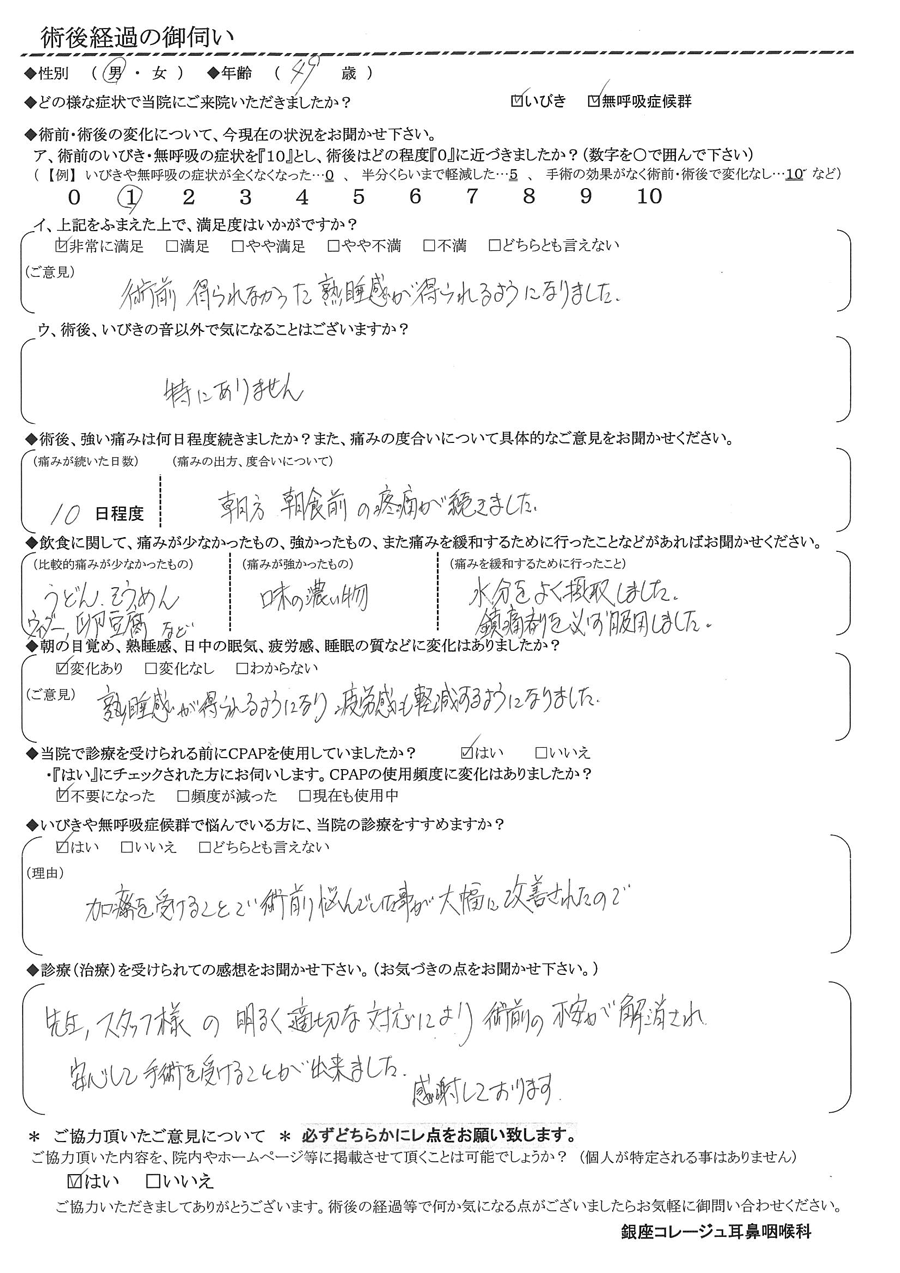 術後経過の御伺い
◆性別 (男・女) ◆年齢 (49歳)
◆どの様な症状で当院にご来院いただきましたか? ☑いびき ☑無呼吸症候群
◆術前・術後の変化について、今現在の状況をお聞かせ下さい。
ア、術前のいびき・無呼吸の症状を『10』とし、術後はどの程度『0』に近づきましたか?(数字を○で囲んで下さい)
(【例】いびきや無呼吸の症状が全くなくなった…0 、 半分くらいまで軽減した…5 、 手術の効果がなく術前・術後で変化なし…10 など)
0 1 2 3 4 5 6 7 8 9 10
イ、上記をふまえた上で、満足度はいかがですか?
☑非常に満足 □満足 □やや満足 □やや不満 □不満 □どちらとも言えない
(ご意見)
術前 得られなかった熟睡感が得られるようになりました.
ウ、術後、いびきの音以外で気になることはございますか?
特にありません
◆術後、強い痛みは何日程度続きましたか?また、痛みの度合いについて具体的なご意見をお聞かせください。
(痛みが続いた日数) (痛みの出方、度合いについて)
10 日程度 朝方 朝食前の疼痛が続きました.
◆飲食に関して、痛みが少なかったもの、強かったもの、また痛みを緩和するために行ったことなどがあればお聞かせください。
(比較的痛みが少なかったもの) (痛みが強かったもの) (痛みを緩和するために行ったこと)
うどん.そうめん 味の濃い物 水分をよく摂取しました.
卵豆腐 など 鎮痛剤を必ず服用しました.
◆朝の目覚め、熟睡感、日中の眠気、疲労感、睡眠の質などに変化はありましたか?
☑変化あり □変化なし □わからない
(ご意見) 熟睡感が得られるようになり、疲労感も軽減するようになりました.
◆当院で診療を受けられる前にCPAPを使用していましたか? ☑はい □いいえ
・『はい』にチェックされた方にお伺いします。CPAPの使用頻度に変化はありましたか?
☑不要になった □頻度が減った □現在も使用中
◆いびきや無呼吸症候群で悩んでいる方に、当院の診療をすすめますか?
☑はい □いいえ □どちらとも言えない
(理由)
加療を受けることで術前悩んでいた事が大幅に改善されたので
◆診療(治療)を受けられての感想をお聞かせ下さい。(お気づきの点をお聞かせ下さい。)
先生,スタッフ様の明るく適切な対応により術前の不安が解消され
安心して手術を受けることが出来ました.
感謝しております.
* ご協力頂いたご意見について * 必ずどちらかにレ点をお願い致します。
ご協力頂いた内容を、院内やホームページ等に掲載させて頂くことは可能でしょうか? (個人が特定される事はありません)
☑はい □いいえ
ご協力いただきましてありがとうございます。術後の経過等で何か気になる点がございましたらお気軽に御問い合わせください。
銀座コレージュ耳鼻咽喉科